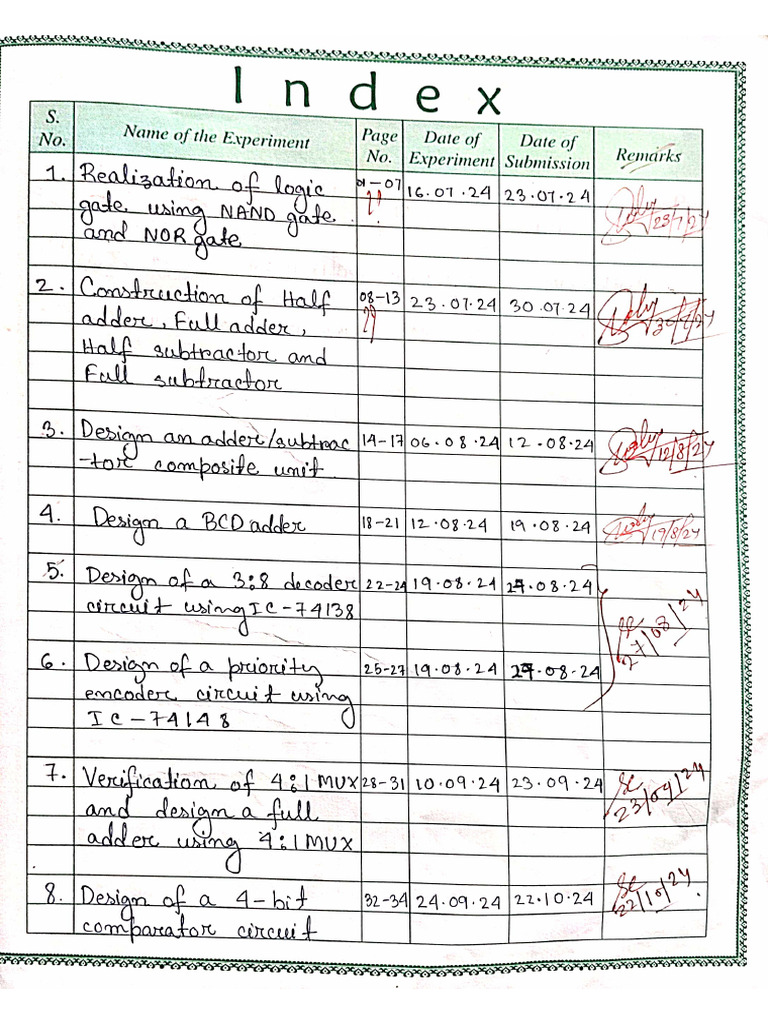 Index
S. No. Name of the Experiment Page No. Date of Experiment Date of Submission Remarks
1. Realization of logic 01-07 16.07.24 23.07.24
gate using NAND gate 23/7/24
and NOR gate
2. Construction of Half 08-13 23.07.24 30.07.24
adder, Full adder,
Half subtractor and
Full subtractor
3. Design an adder/subtrac 14-17 06.08.24 12.08.24
-tor composite unit 12/8/24
4. Design a BCD adder 18-21 12.08.24 19.08.24 19/8/24
5. Design of a 3:8 decoder 22-24 19.08.24 27.08.24
circuit using IC-74138 27/08/24
6. Design of a priority 25-27 19.08.24 27.08.24
encoder circuit using
IC-74148
7. Verification of 4:1 MUX 28-31 10.09.24 23.09.24
and design a full 23/09/24
adder using 4:1 MUX
8. Design of a 4-bit 32-34 24.09.24 22.10.24 22/10/24
comparator circuit